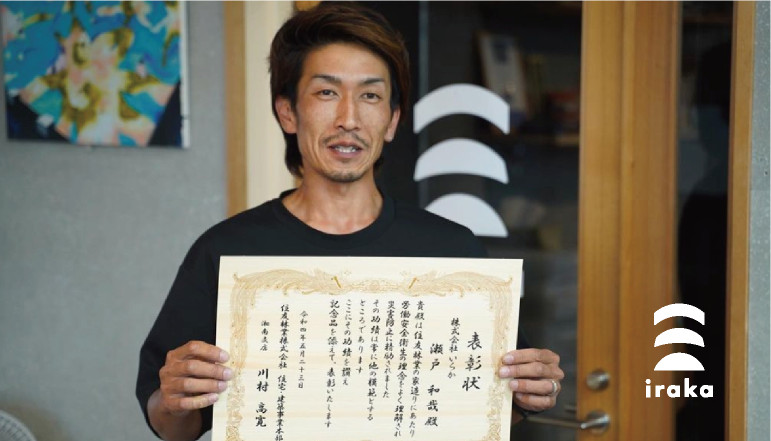 表彰状
株式会社 いらか
瀬戸 和哉 殿
貴殿は住友林業の家造りにあたり
労働安全衛生の理念をよく理解され
災害防止に精励されました
その功績は常に他の模範とする
ところであります
ここにその功績を讃え
記念品を添えて表彰いたします
令和四年五月二十三日
住友林業株式会社 住宅・建築事業本部
湘南支店
川村 高寛
iraka